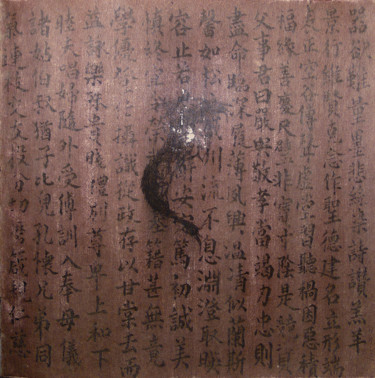 器欲難量墨悲絲染詩讚羔羊
景行維賢克念作聖德建名立形端
表正空谷傳聲虛堂習聽禍因惡積
福緣善慶尺璧非寶寸陰是競資
父事君曰嚴與敬孝當竭力忠則
盡命臨深履薄夙興溫凊似蘭斯
馨如松川流不息淵澄取映
容止若辭安定篤初誠美
慎終宜基籍甚無竟
學優登仕攝職從政存以甘棠去而
益詠樂殊貴賤禮別尊卑上和下
睦夫唱婦隨外受傅訓入奉母儀
諸姑伯叔猶子比兒孔懷兄弟同
氣連枝交友投分切磨箴規仁慈